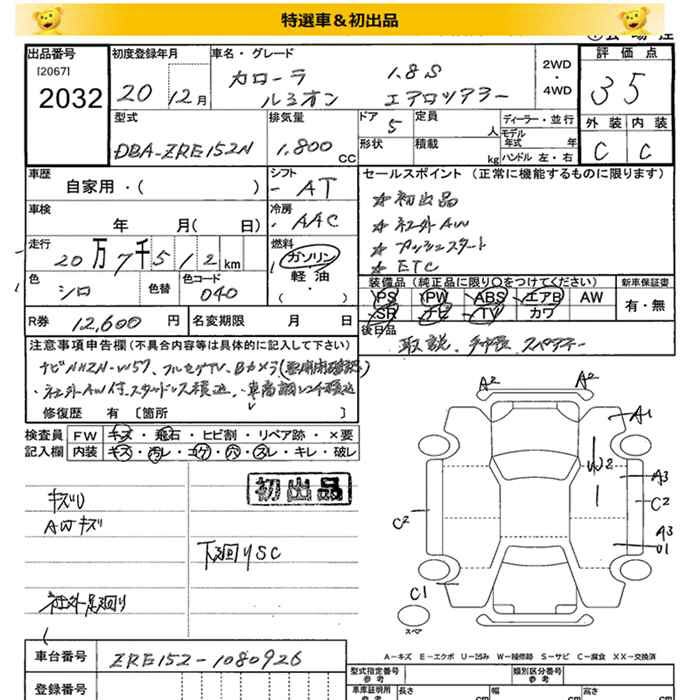 特選車＆初出品
出品番号 初度登録年月 車名・グレード 2WD・4WD 評価点
[2067]
2032 20 12月 カローラ 1.8S 35
ルミオン エアロツアラー
外装 内装
C C
型式 排気量 ドア 5 定員 人 ディーラー・並行
DBA-ZRE152N 1,800 CC 形状 積載 kg モデル年式 年
ハンドル 左・右
車歴 シフト セールスポイント (正常に機能するものに限ります)
自家用・( ) AT ☆初出品
車検 冷房 ☆社外AW
年 月( 日) AAC ☆プッシュスタート
走行 燃料 ☆ETC
20万7千512km ガソリン
軽油
・( )
色 色替 色コード
シロ 040
装備品 (純正品に限り○をつけてください) 新車保証書
PS PW ABS エアB AW 有・無
SR ナビ TV カワ
R券 12,600円 名変期限 月 日 後日品
取説、手帳、スペアキー
注意事項申告欄(不具合内容等は具体的に記入して下さい)
ナビNHZN-W57、フルセグTV、Bカメラ
・社外AW付、スタッドレス積込、
修復歴 有 〔箇所 〕
検査員 FW キズ・飛石・ヒビ割・リペア跡・×要
記入欄 内装 キズ・汚レ・コゲ・穴・スレ・キレ・破レ
初出品
キズU
AWキズ
下廻りSC
社外足廻り
A2 A2
A1
W2
A3
C2
C2
A3
U1
C1
スペア
A－キズ E－エクボ U－凹み W－補修跡 S－サビ C－腐食 XX－交換済
車台番号 ZRE152-1080926
登録番号
型式指定番号 参考 類別区分番号 参考
車庫証明用 参考 長さ cm 幅 cm 高さ cm